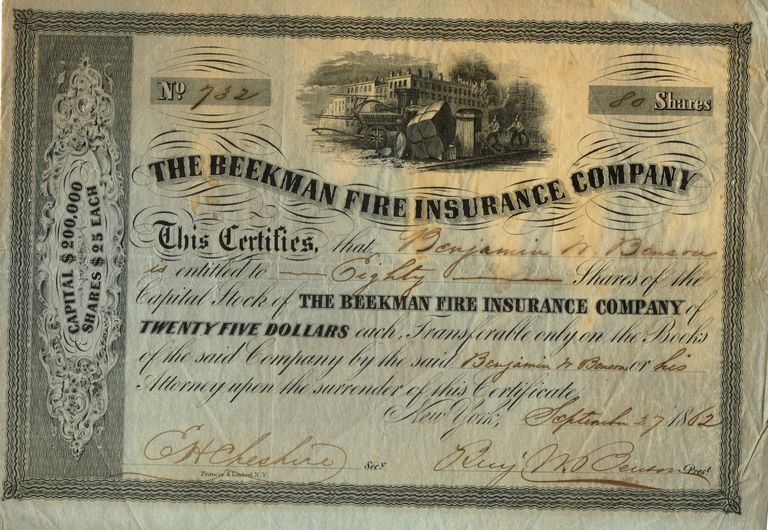 No 732
80 Shares
THE BEEKMAN FIRE INSURANCE COMPANY
CAPITAL $200,000
SHARES $25 EACH
This Certifies, that Benjamin W. Benson
is entitled to Eighty Shares of the
Capital Stock of THE BEEKMAN FIRE INSURANCE COMPANY of
TWENTY FIVE DOLLARS each, Transferable only on the Books
of the said Company by the said Benjamin W Benson or his
Attorney upon the surrender of this Certificate
New York, September 27 1862
E H Cheshire Secy Benj W Benson Prest
Francis & Loutrel N.Y.